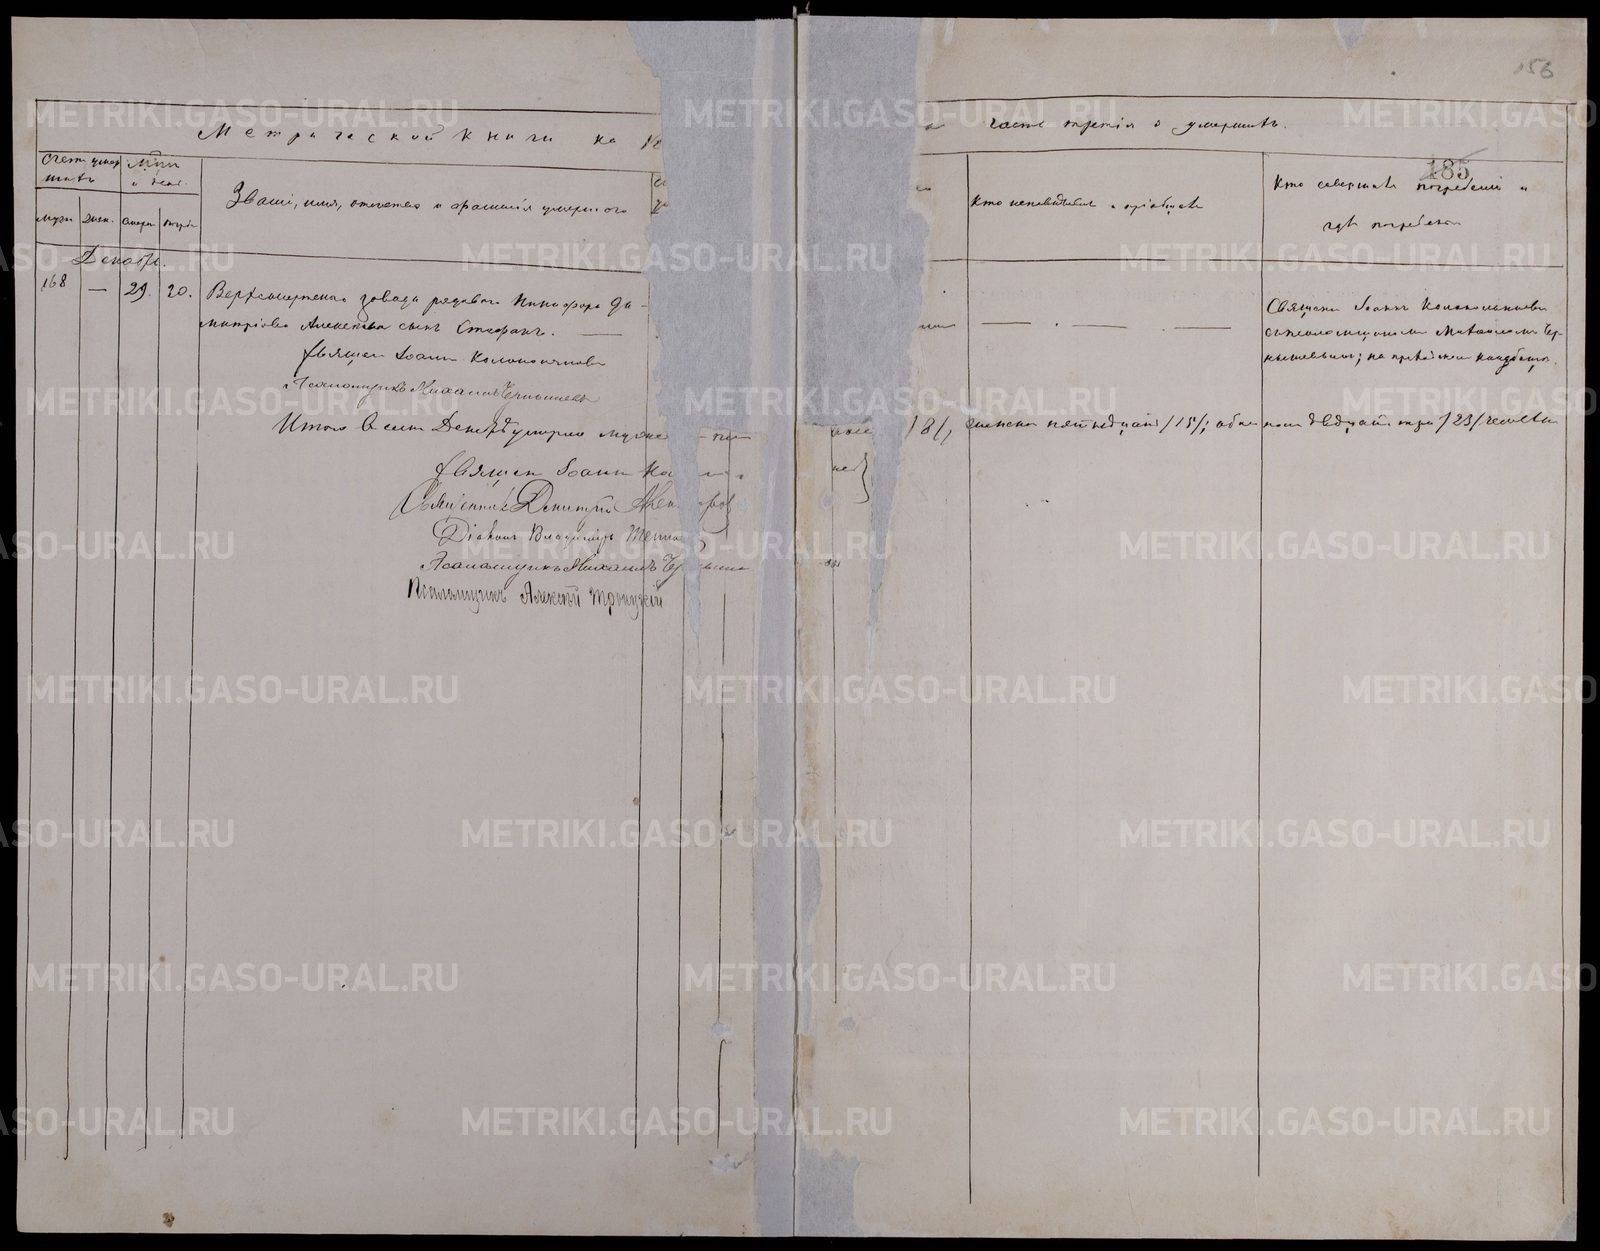 156
Метрической книги на
часть третія о умершихъ.
185
Счетъ умер
шихъ
и день.
Званіе, имя, отчество и фамилія умершаго
Кто исповѣдывалъ и пріобщалъ
Кто совершалъ погребеніе и
гдѣ погребенъ
Декабрь.
168 — 29. 20.
завода рядоваго Никифора Ди-
митріева Алексѣева сынъ Стефанъ. —
— . — . —
Священ Іоаннъ Колокольниковъ
съ псаломщикомъ Михаиломъ Чер-
нышевымъ; на приходскомъ кладбищѣ.
Священ Іоаннъ Колокольниковъ
Псаломщикъ Михаилъ Чернышевъ
Итого въ семъ Декабрѣ умерло муже
/8/, женска пятнадцать /15/; обое
пола двадцать три /23/ человѣка
Священ Іоаннъ Ко
Священникъ Димитрій
Діаконъ Владиміръ
Псаломщикъ Михаилъ
Псаломщикъ Алексѣй Троицкій
METRIKI.GASO-URAL.RU